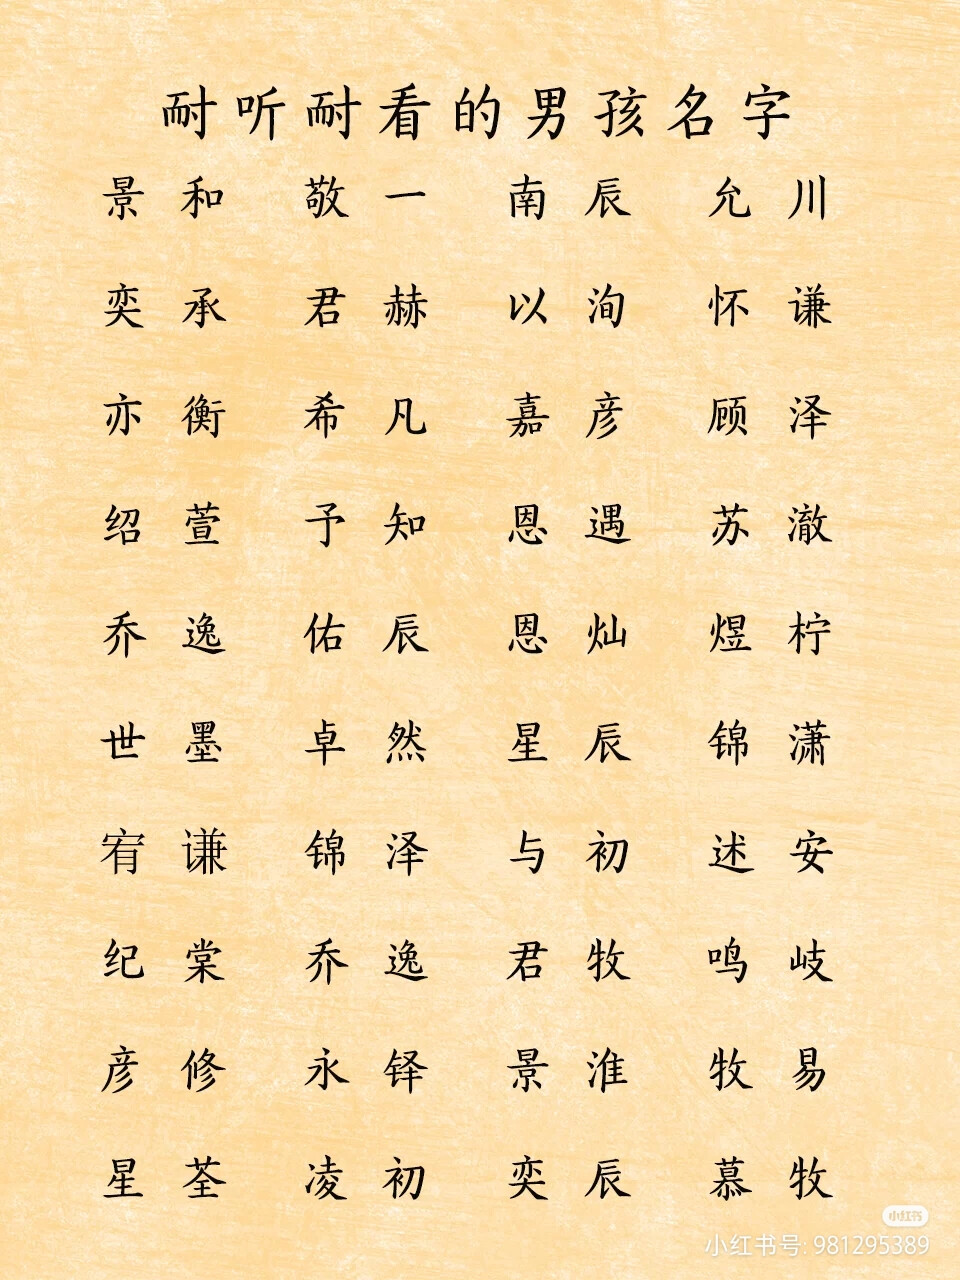 耐听耐看的男孩名字
景和 敬一 南辰 允川
奕承 君赫 以洵 怀谦
亦衡 希凡 嘉彦 顾泽
绍萱 予知 恩遇 苏澈
乔逸 佑辰 恩灿 煜柠
世墨 卓然 星辰 锦潇
宥谦 锦泽 与初 述安
纪棠 乔逸 君牧 鸣岐
彦修 永铎 景淮 牧易
星荃 凌初 奕辰 慕牧
小红书
小红书号: 981295389